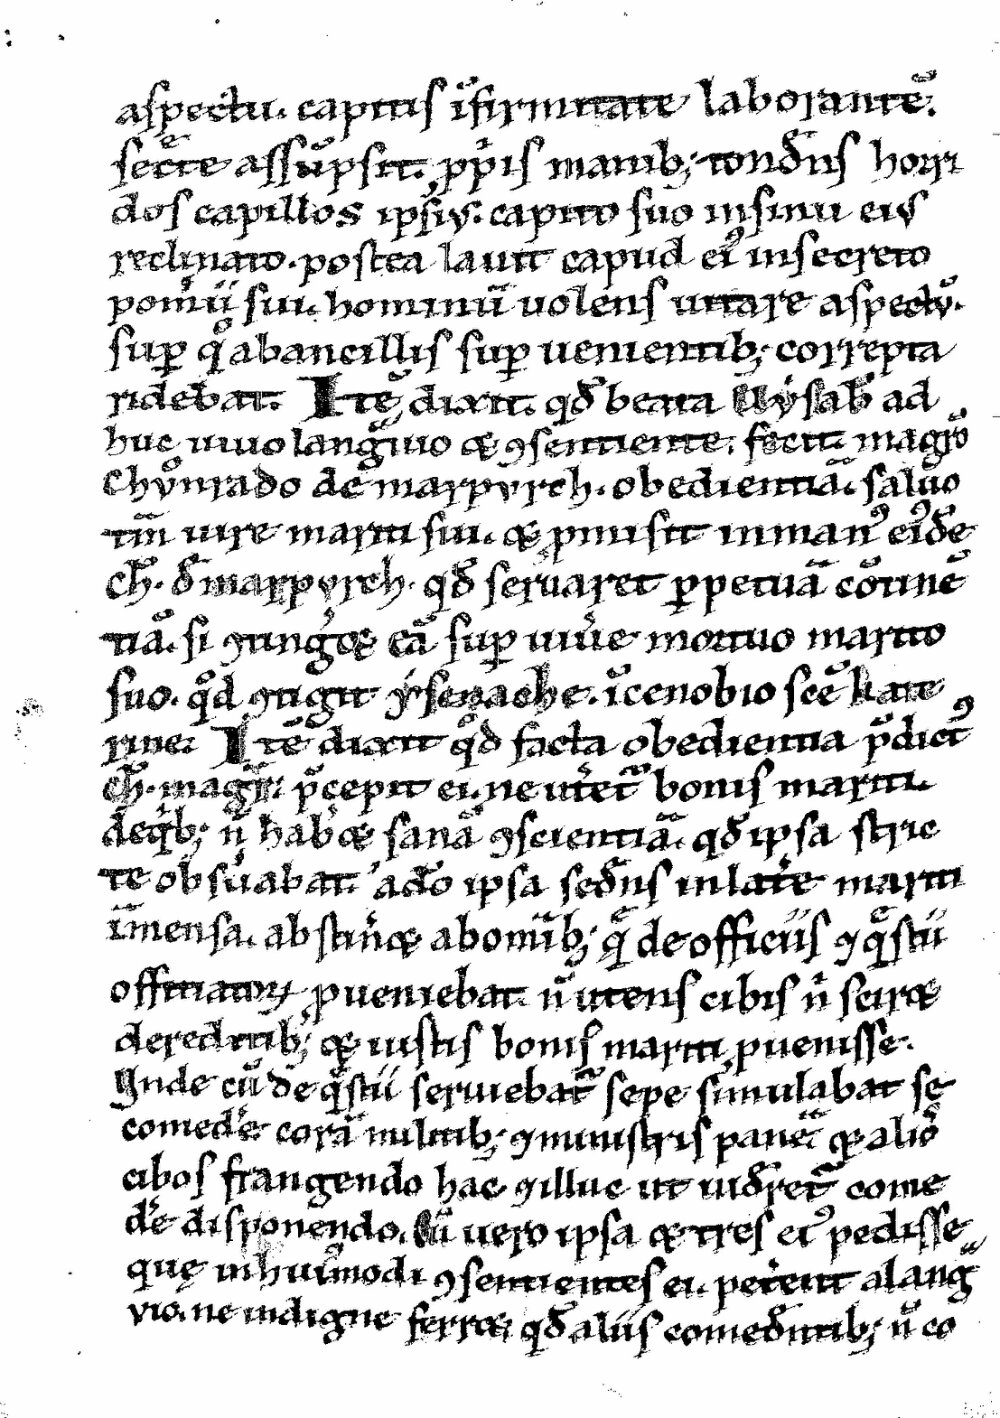 aspectu. capitis īfirmitate laborantē.
secͣte assūpsit. ꝓpͥis manib; tondn̄s horri
dos capillos ipsiꝰ. capite suo insinu eiꝰ
reclinato. postea lauit capud eiꝰ insecreto
pomͥii sui. hominū uolens uitare aspectū.
suꝑ qͦ abancillis suꝑ uenientib; correpta
ridebat. Itē dixit. qd̄ beata Elẏsab' ad
huc uiuo langͣuio ⁊ ꝯsentiente. fecit magrō
Chuͦnrado dē marpurch. obedientiā. saluo
tm̄ iure mariti sui. ⁊ ꝓmisit inmanꝰ eiꝰdē
Ch'. d̄ marpurch. qd̄ seruaret ꝑpetuā cōtinē
tiā. si ꝯting'et eā suꝑ uiu'e mortuo marito
suo. qͦd ꝯtigit ẏsenache. īcenobio scē Kate
rine. Itē dixit qͦd facta obedientia p̄dictꝰ
Ch'. magr̄. p̄cepit ei. ne ut'et᷑ bonis mariti.
deqͥb; n̄ hab'et sanā ꝯscientiā. qd̄ ipsa stric
te obs'uabat. adeo ipsa sedn̄s inlat'e mariti
īmensa. abstin'et abomīb; qͣ de officiis ꝯqͣstu
offitiatoꝝ ꝓueniebat. n̄ utens cibis nͥ sciret
deredittib; ⁊ iustis bonis mariti ꝓuenisse.
Vnde cū de qͣstu seruiebat᷑ sepe simulabat se
comed'e. corā militib; ꝯministris panē ⁊ alios
cibos frangendo hac ꝯilluc ut uid'ret᷑ come
d'e disponendo. Cū uero ipsa ⁊ tres eiꝰ pedisse
quę inhuiꝰmodi ꝯsentientes ei. pet'ent alangͣ
uio. ne indigne ferret. qd̄ aliis comedn̄tib; n̄ co